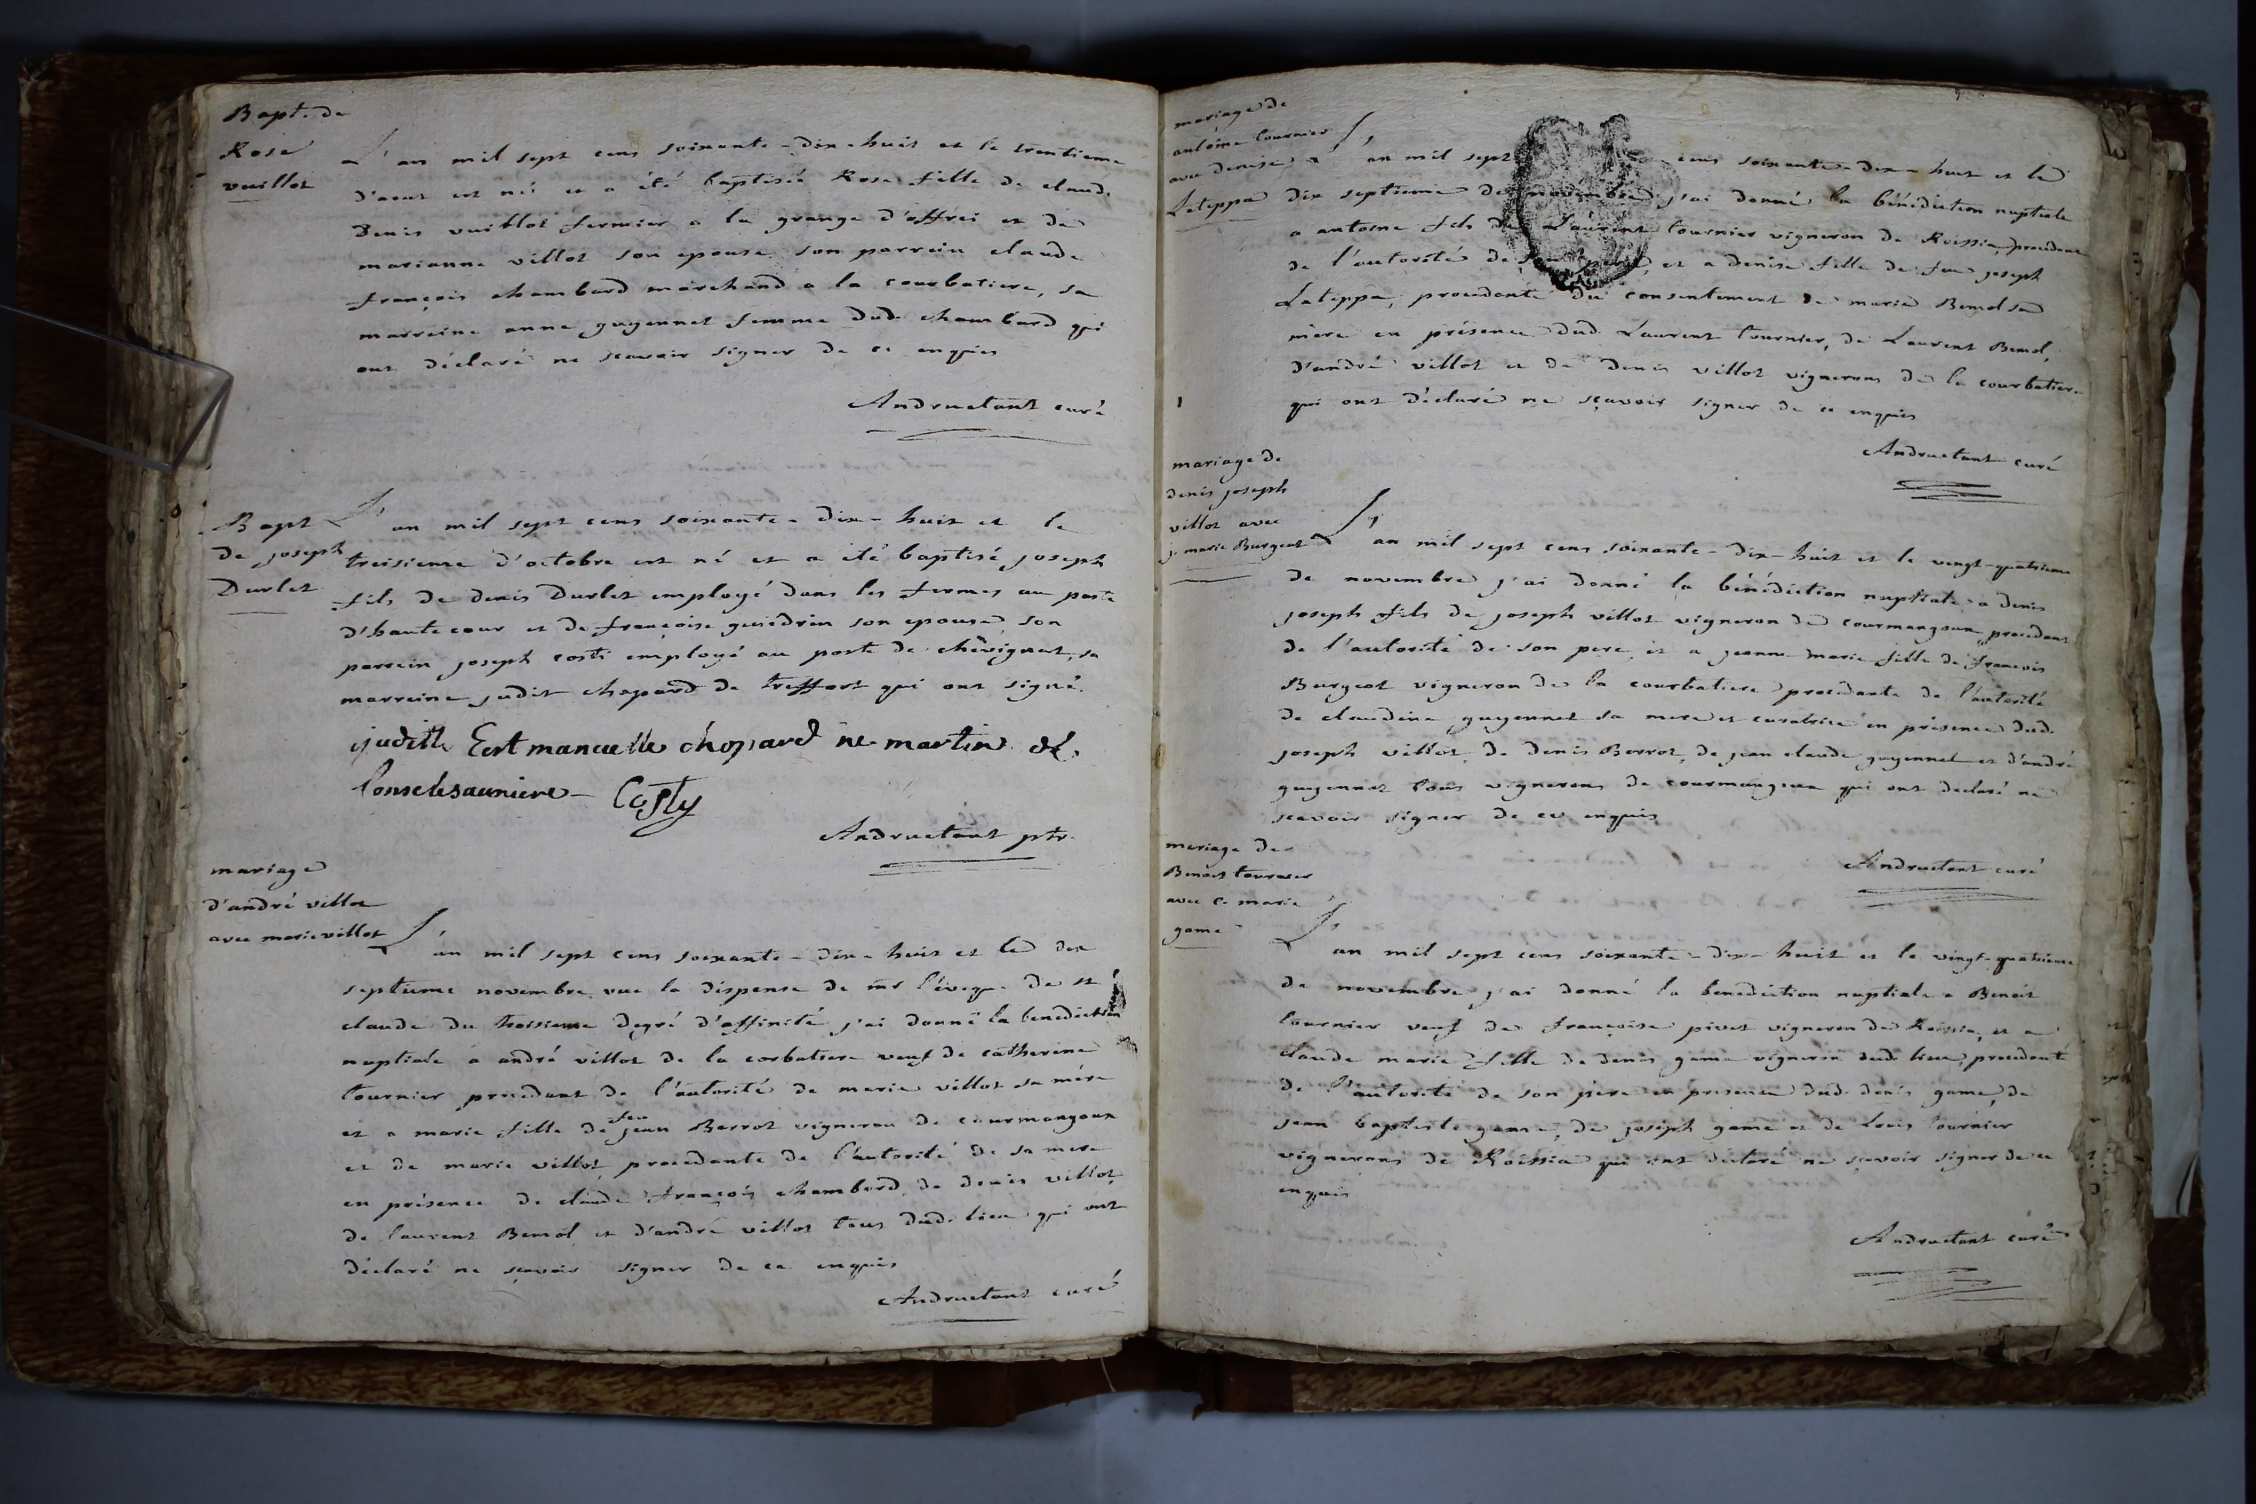 Bapt. de
Rose
vuillot
L'an mil sept cens soixante-dix-huit et le trentieme
d'aout est né et a été baptisée Rose fille de claude
Denis vuillot fermier a la grange d'affrei et de
marianne villot son epouse, son parrein claude
françois chambard marchand a la courbatiere, sa
marreine anne guyennet femme dud. chambard qui
ont déclaré ne scavoir signer de ce enquis
Andructant curé
Bapt
de joseph
Durlet
L'an mil sept cens soixante-dix-huit et le
treisieme d'octobre est né et a été baptisé joseph
fils de denis Durlet employé dans les fermes au poste
d'hautecour et de françoise guiedrin son epouse, son
parrein joseph costi employé au poste de chevignat, sa
marreine judit chapard de treffort qui ont signé.
judith Eertmanuelle chopard ne martin de
Lonselesauniere Costy
Andructant ptr.
mariage
d'andré villot
avec marie villot
L'an mil sept cens soixante-dix-huit et le dix
septieme novembre, vue la dispense de mr l'éveque de st
claude du troisieme degré d'affinité j'ai donné la benediction
nuptiale a andré villot de la corbatiere veuf de catherine
tournier procedant de l'autorité de marie villot sa mére
et a marie fille de feu jean Berrot vigneron de courmangoux
et de marie villot, procedante de l'autorité de sa mere
en présence de claude françois chambard, de denis villot,
de laurent Bemol et d'andré villot tous dud. lieu qui ont
déclaré ne sçavoir signer de ce enquis
Andructant curé
mariage de
antoine tournier
avec denise
Lateppa
L'an mil sept cens soixante-dix-huit et le
dix septieme de novembre j'ai donné la bénédiction nuptiale
a antoine fils de Laurent tournier vigneron de Roissia, procedant
de l'autorité de son pere, et a denise fille de feu joseph
Lateppa, procedante du consentement de marie Bemol sa
mère en présence dud. Laurent tournier, de Laurent Bemol,
d'andré villot et de Denis villot vignerons de la courbatiere
qui ont déclaré ne sçavoir signer de ce enquis
Andructant curé
mariage de
denis joseph
villot avec
j. marie Burgeot
L'an mil sept cens soixante-dix-huit et le vingt-quatrieme
de novembre j'ai donné la bénédiction nuptiale a denis
joseph fils de joseph villot vigneron de courmangoux, procedant
de l'autorité de son pere, et a jeanne marie fille de françois
Burgeot vigneron de la courbatiere procedante de l'autorité
de claudine guyennet sa mere et curatrice en présence dud.
joseph villot, de denis Berrot, de jean claude guyennet et d'andré
guyennet tous vignerons de courmangoux qui ont declaré ne
scavoir signer de ce enquis
Andructant curé
mariage de
Benoit tournier
avec c. marie
game
L'an mil sept cens soixante-dix-huit et le vingt-quatrieme
de novembre j'ai donné la benediction nuptiale a Benoit
tournier veuf de françoise pivet vigneron de Roissia, et a
claude marie fille de denis game vigneron dud. lieu, procedente
de l'autorité de son père en presence dud. denis game, de
jean baptiste game, de joseph game et de Louis tournier
vignerons de Roissia qui ont declaré ne sçavoir signer de ce
enquis
Andructant curé